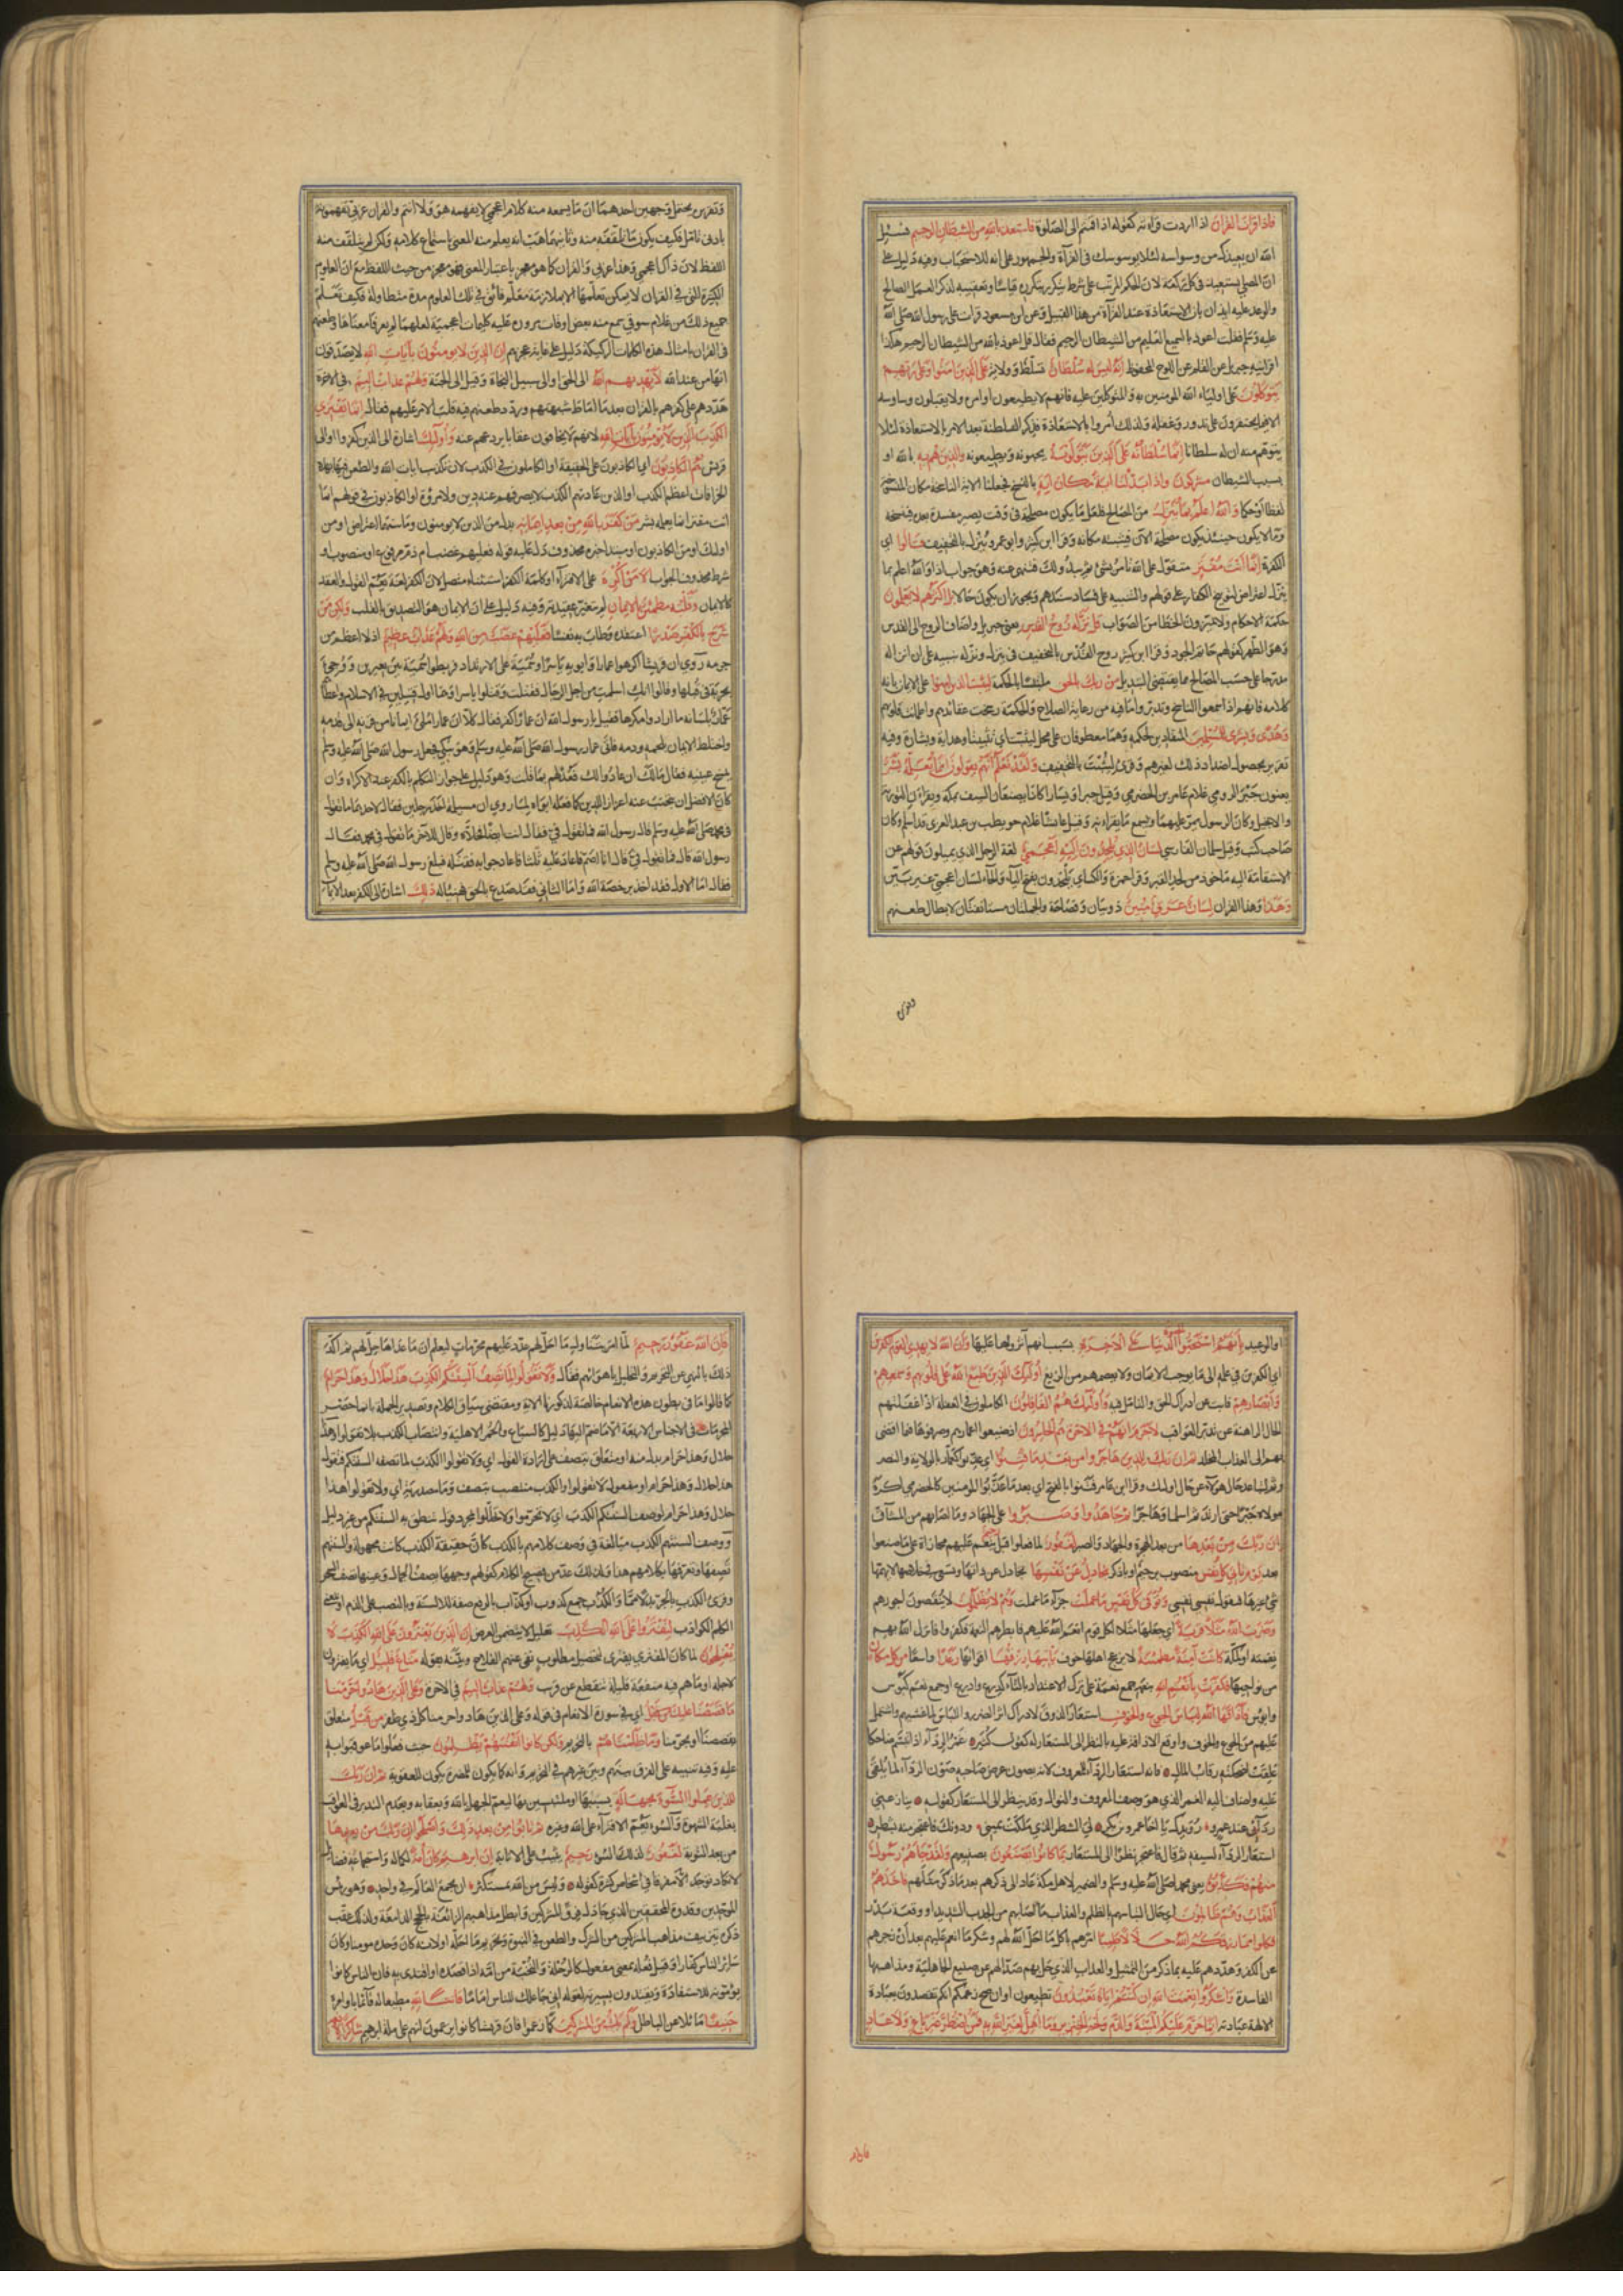 فاذا قرات القران اذا اردت قراءته كقوله اذا قمتم الى الصلوة فاستعذ بالله من الشيطان الرجيم فسئل
الله ان يعيذك من وسواسه لئلا يوسوسك فى القرآة والجمهور على انه للاستحباب وفيه دليل على
ان المصلى يستعيذ فى كل ركعة لان الحكم المرتب على شرط يتكرر بتكرره قياسا وتعقيبه لذكر العمل الصالح
والوعد عليه ايذان بان الاستعاذة عند القرآة من هذا القبيل وعن ابن مسعود قرات على رسول الله صلى الله
عليه وسلم فقلت اعوذ بالسميع العليم من الشيطان الرجيم فقال قل اعوذ بالله من الشيطان الرجيم هكذا
اقرانيه جبريل عن القلم عن اللوح المحفوظ انه ليس له سلطان تسلط وولاية على الذين امنوا وعلى ربهم
يتوكلون على اولياء الله المؤمنين به والمتوكلين عليه فانهم لا يطيعون اوامره ولا يقبلون وساوسه
الا فيما يحتقرون على ندور وغفلة ولذلك أمروا بالاستعاذة فذكر السلطنة بعد الامر بالاستعاذة لئلا
يتوهم منه ان له سلطانا انما سلطانه على الذين يتولونه يحبونه ويطيعونه والذين هم به بالله او
بسبب الشيطان مشركون واذا بدلنا اية مكان اية بالنسخ فجعلنا الاية الناسخة مكان المنسوخة
لفظا او حكما والله اعلم بما ينزل من المصالح فلعل ما يكون مصلحة فى وقت يصير مفسدة بعده فينسخه
وما لا يكون حينئذ يكون مصلحة الان فيثبته مكانه وقرا ابن كثير وابو عمرو ينزل بالتخفيف قالوا اى
الكفرة انما انت مفتر متقول على الله تامر بشئ ثم يبدو لك فتنهى عنه وهو جواب اذا والله اعلم بما
ينزل اعتراض لتوبيخ الكفار على قولهم والتنبيه على فساد سندهم ويجوز ان يكون حالا بل اكثرهم لا يعلمون
حكمة الاحكام ولا يميزون الخطا من الصواب قل نزله روح القدس يعنى جبريل واضاف الروح الى القدس
وهو الطهر كقولهم حاتم الجود وقرا ابن كثير روح القدس بالتخفيف فى ينزل ونزله تنبيه على ان انزاله
مدرجا على حسب المصالح مما يقتضى التبديل من ربك بالحق ملتبسا بالحكمة ليثبت الذين امنوا على الايمان بانه
كلامه فانهم اذا سمعوا الناسخ وتدبروا ما فيه من رعاية الصلاح والحكمة رسخت عقائدهم واطمانت قلوبهم
وهدى وبشرى للمسلمين المنقادين لحكمه وهما معطوفان على محل ليثبت اى تثبيتا وهداية وبشارة وفيه
تعريض بحصول اضداد ذلك لغيرهم وقرئ ليثبت بالتخفيف ولقد نعلم انهم يقولون انما يعلمه بشر
يعنون جبر الرومى غلام عامر بن الحضرمى وقيل جبرا ويسارا كانا يصنعان السيف بمكة ويقرآن التورية
والانجيل وكان الرسول يمر عليهما ويسمع ما يقرانه وقيل عائشا غلام حويطب بن عبد العزى قد اسلم وكان
صاحب كتب وقيل سلمان الفارسى لسان الذى يلحدون اليه اعجمى لغة الرجل الذى يميلون قولهم عن
الاستقامة اليه ماخوذ من لحد القبر وقرا حمزة والكسائى يلحدون بفتح اليآء والحآء لسان اعجمى غير بين
وهذا وهذا القران لسان عربى مبين ذو بيان وفصاحة والجملتان مستانفتان لابطال طعنهم
وتقريره
وتقريره يحتمل وجهين احدهما ان ما يسمعه منه كلام اعجمى لا يفهمه هو ولا انتم والقران عربى تفهمونه
بادنى تامل فكيف يكون ما تلقفه منه وثانيهما هب انه يعلم منه المعنى باستماع كلامه ولكن لم يتلقف منه
اللفظ لان ذاك اعجمى وهذا عربى والقران كما هو معجز باعتبار المعنى فهو معجز من حيث اللفظ مع ان العلوم
الكثيرة التى فى القران لا يمكن تعلمها الا بملازمة معلم فائق فى تلك العلوم مدة متطاولة فكيف تعلم
جميع ذلك من غلام سوقى سمع منه بعض اوقات مروره عليه كليمات اعجمية لعلهما لم يعرفا معناها وطعنهم
فى القران بامثال هذه الكلمات الركيكة دليل على غاية عجزهم ان الذين لا يومنون بآيات الله لا يصدقون
انها من عند الله لا يهديهم الله الى الحق او الى سبيل النجاة وقيل الى الجنة ولهم عذاب اليم فى الاخرة
هددهم على كفرهم بالقران بعد ما اماط شبهتهم ورد طعنهم فيه قلب الامر عليهم فقال انما يفترى
الكذب الذين لا يؤمنون بآيات الله لانهم لا يخافون عقابا يردعهم عنه واولئك اشارة الى الذين كفروا او الى
قريش هم الكاذبون اى الكاذبون على الحقيقة او الكاملون فى الكذب لان تكذيب ايات الله والطعن فيها بهذه
الخرافات اعظم الكذب او الذين عادتهم الكذب لا يصرفهم عنه دين ولا مروة او الكاذبون فى قولهم انما
انت مفتر انما يعلمه بشر من كفر بالله من بعد ايمانه بدل من الذين لا يومنون وما بينهما اعتراض او من
اولئك او من الكاذبون او مبتدا خبره محذوف دل عليه قوله فعليهم غضب او ذم مرفوع او منصوب او
شرط محذوف الجواب الا من اكره على الافترآء او كلمة الكفر استثناء متصل لان الكفر لغة يعم القول والعقد
كالايمان وقلبه مطمئن بالايمان لم يتغير عقيدته وفيه دليل على ان الايمان هو التصديق بالقلب ولكن من
شرح بالكفر صدرا اعتقده وطاب به نفسا فعليهم غضب من الله ولهم عذاب عظيم اذ لا اعظم من
جرمه روى ان قريشا اكرهوا عمارا وابويه ياسرا وسمية على الارتداد فربطوا سمية بين بعيرين ووجئ
بحربة فى قبلها وقالوا انك اسلمت من اجل الرجال فقتلت وقتلوا ياسرا وهما اول قتيلين فى الاسلام واعطا
عمار بلسانه ما ارادوا مكرها فقيل يا رسول الله ان عمارا كفر فقال كلا ان عمارا ملئ ايمانا من قرنه الى قدمه
واختلط الايمان بلحمه ودمه فاتى عمار رسول الله صلى الله عليه وسلم وهو يبكى فجعل رسول الله صلى الله عليه وسلم
يمسح عينيه فقال مالك ان عادوا لك فعد لهم بما قلت وهو دليل على جواز التكلم بالكفر عند الاكراه وان
كان الافضل ان يجتنب عنه اعزازا للدين كما فعله ابواه لما روى ان مسيلمة اخذ رجلين فقال لاحدهما ما تقول
فى محمد صلى الله عليه وسلم قال رسول الله قال فما تقول فى فقال انت ايضا فخلاه وقال للآخر ما تقول فى محمد فقال
رسول الله قال فما تقول فى قال انا اصم فاعاد عليه ثلثا فاعاد جوابه فقتله فبلغ رسول الله صلى الله عليه وسلم
فقال اما الاول فقد اخذ برخصة الله واما الثانى فقد صدع بالحق فهنيئا له ذلك اشارة الى الكفر بعد الايمان
او الوعيد بانهم استحبوا الدنيا على الاخرة بسبب انهم آثروها عليها وان الله لا يهدى القوم الكفرين
اى الكفرين فى علمه الى ما يوجب الايمان ولا يعصمهم من الزيغ اولئك الذين طبع الله على قلوبهم وسمعهم
وابصارهم فابت عن ادراك الحق والتامل فيه واولئك هم الغافلون الكاملون فى الغفلة اذ اغفلتهم
الحال الراهنة عن تدبر العواقب لا جرم انهم فى الاخرة هم الخسرون اذ ضيعوا اعمارهم وصرفوها فيما افضى
بهم الى العذاب المخلد ثم ان ربك للذين هاجروا من بعد ما فتنوا اى عذبوا كعمار بالولاية والنصر
وثم لتباعد حال هؤلاء عن حال اولئك وقرا ابن عامر فتنوا بالفتح اى بعد ما عذبوا المؤمنين كالحضرمى اكره
مولاه جبرا حتى ارتد ثم اسلما وهاجرا ثم جاهدوا وصبروا على الجهاد وما اصابهم من المشآق
ان ربك من بعدها من بعد الهجرة والجهاد والصبر لغفور لما فعلوا قبل رحيم ينعم عليهم مجازاة على ما صنعوا
بعد يوم تاتى كل نفس منصوب برحيم او باذكر تجادل عن نفسها تجادل عن ذاتها وتسعى فى خلاصها لا يهمها
شئ غيرها فتقول نفسى نفسى وتوفى كل نفس ما عملت جزآء ما عملت وهم لا يظلمون لا ينقصون اجورهم
وضرب الله مثلا قرية اى جعلها مثلا لكل قوم انعم الله عليهم فابطرهم النعمة فكفروا فانزل الله بهم
نقمته او لمكة كانت آمنة مطمئنة لا يزعج اهلها خوف ياتيها رزقها اقواتها رغدا واسعا من كل مكان
من نواحيها فكفرت بانعم الله بنعمه جمع نعمة على ترك الاعتداد بالتآء كدرع وادرع او جمع نعم كبوس
وابوس فاذاقها الله لباس الجوع والخوف استعار الذوق لادراك اثر الضرر واللباس لما غشيهم واشتمل
عليهم من الجوع والخوف واوقع الاذاقة عليه بالنظر الى المستعار له كقول كثير غمر الردآء اذا تبسم ضاحكا
غلقت لضحكته رقاب المال فانه استعار الردآء للمعروف لانه يصون عرض صاحبه صون الردآء لما يلقى
عليه واضاف اليه الغمر الذى هو وصف المعروف والنوال وقد ينظر الى المستعار كقوله ينازعنى
ردآئى عبد عمرو رويدك يا اخا عمرو بن بكر لى الشطر الذى ملكت يمينى ودونك فاعتجر منه بشطر
استعار الردآء لسيفه ثم قال فاعتجر نظرا الى المستعار بما كانوا يصنعون بصنيعهم ولقد جاهم رسول
منهم فكذبوه يعنى محمدا صلى الله عليه وسلم والضمير لاهل مكة عاد الى ذكرهم بعد ما ذكر مثلهم فاخذهم
العذاب وهم ظالمون اى حال التباسهم بالظلم والعذاب ما اصابهم من الجدب الشديد او وقعة بدر
فكلوا مما رزقكم الله حلالا طيبا امرهم باكل ما احل الله لهم وشكر ما انعم عليهم بعد ان زجرهم
عن الكفر وهددهم عليه بما ذكر من التمثيل والعذاب الذى حل بهم صدا لهم عن صنيع الجاهلية ومذاهبها
الفاسدة واشكروا نعمت الله ان كنتم اياه تعبدون تطيعون او ان صح زعمكم انكم تقصدون بعبادة
الالهة عبادته انما حرم عليكم الميتة والدم ولحم الخنزير وما اهل لغير الله به فمن اضطر غير باغ ولا عاد
فان الله
فان الله غفور رحيم لما امرهم بتناول ما احل لهم عدد عليهم محرمات ليعلم ان ما عداها حل لهم ثم اكد
ذلك بالنهى عن التحريم والتحليل باهوائهم فقال ولا تقولوا لما تصف السنتكم الكذب هذا حلال وهذا حرام
كما قالوا ما فى بطون هذه الانعام خالصة لذكورنا الاية ومقتضى سياق الكلام وتصدير الجملة بانما حصر
المحرمات فى الاجناس الاربعة الا ما ضم اليها دليل كالسباع والحمر الاهلية وانتصاب الكذب بلا تقولوا وهذا
حلال وهذا حرام بدل منه او متعلق بتصف على ارادة القول اى ولا تقولوا الكذب لما تصفه السنتكم فتقول
هذا حلال وهذا حرام او مفعول لا تقولوا والكذب منتصب بتصف وما مصدرية اى ولا تقولوا هذا
حلال وهذا حرام لوصف السنتكم الكذب اى لا تحرموا ولا تحللوا بمجرد قول تنطق به السنتكم من غير دليل
ووصف السنتهم الكذب مبالغة فى وصف كلامهم بالكذب كان حقيقة الكذب كانت مجهولة والسنتهم
تصفها وتعرفها بكلامهم هذا ولذلك عد من فصيح الكلام كقولهم وجهها يصف الجمال وعينها تصف السحر
وقرئ الكذب بالجر بدلا من ما والكذب جمع كذوب او كذاب بالرفع صفة للالسنة وبالنصب على الذم او بمعنى
الكلم الكواذب لتفتروا على الله الكذب تعليل لا يتضمن الغرض ان الذين يفترون على الله الكذب لا
يفلحون لما كان المفترى يفترى لتحصيل مطلوب نفى عنهم الفلاح وبينه بقوله متاع قليل اى ما يفترون
لاجله او ما هم فيه منفعة قليلة تنقطع عن قرب ولهم عذاب اليم فى الاخرة وعلى الذين هادوا حرمنا
ما قصصنا عليك من قبل اى فى سورة الانعام فى قوله وعلى الذين هادوا حرمنا كل ذى ظفر من قبل متعلق
بقصصنا او بحرمنا وما ظلمناهم بالتحريم ولكن كانوا انفسهم يظلمون حيث فعلوا ما عوقبوا به
عليه وفيه تنبيه على الفرق بينهم وبين غيرهم فى التحريم وانه كما يكون للمضرة يكون للعقوبة ثم ان ربك
للذين عملوا السوء بجهالة بسببها او ملتبسين بها ليعم الجهل بالله وبعقابه وعدم التدبر فى العواقب
لغلبة الشهوة والسوء يعم الافترآء على الله وغيره ثم تابوا من بعد ذلك واصلحوا ان ربك من بعدها
من بعد التوبة لغفور لذلك السوء رحيم يثيب على الانابة ان ابرهيم كان امة لكماله واستجماعه فضائل
لا تكاد توجد الا مفرقة فى اشخاص كثيرة كقوله وليس من الله بمستنكر ان يجمع العالم فى واحد وهو رئيس
الموحدين وقدوة المحققين الذى جادل فرق المشركين وابطل مذاهبهم الزائغة بالحجج الدامغة ولذلك عقب
ذكره بتزييف مذاهب المشركين من الشرك والطعن فى النبوة وتحريم ما احله او لانه كان وحده مومنا وكان
سائر الناس كفارا وقيل فعلة بمعنى مفعول كالرحلة والنخبة من امه اذا قصده او اقتدى به فان الناس كانوا
يؤمونه للاستفادة ويقتدون بسيرته لقوله انى جاعلك للناس اماما قانتا لله مطيعا له قائما باوامره
حنيفا مائلا عن الباطل ولم يك من المشركين كما زعموا فان قريشا كانوا يزعمون انهم على ملة ابرهيم شاكرا لانعمه